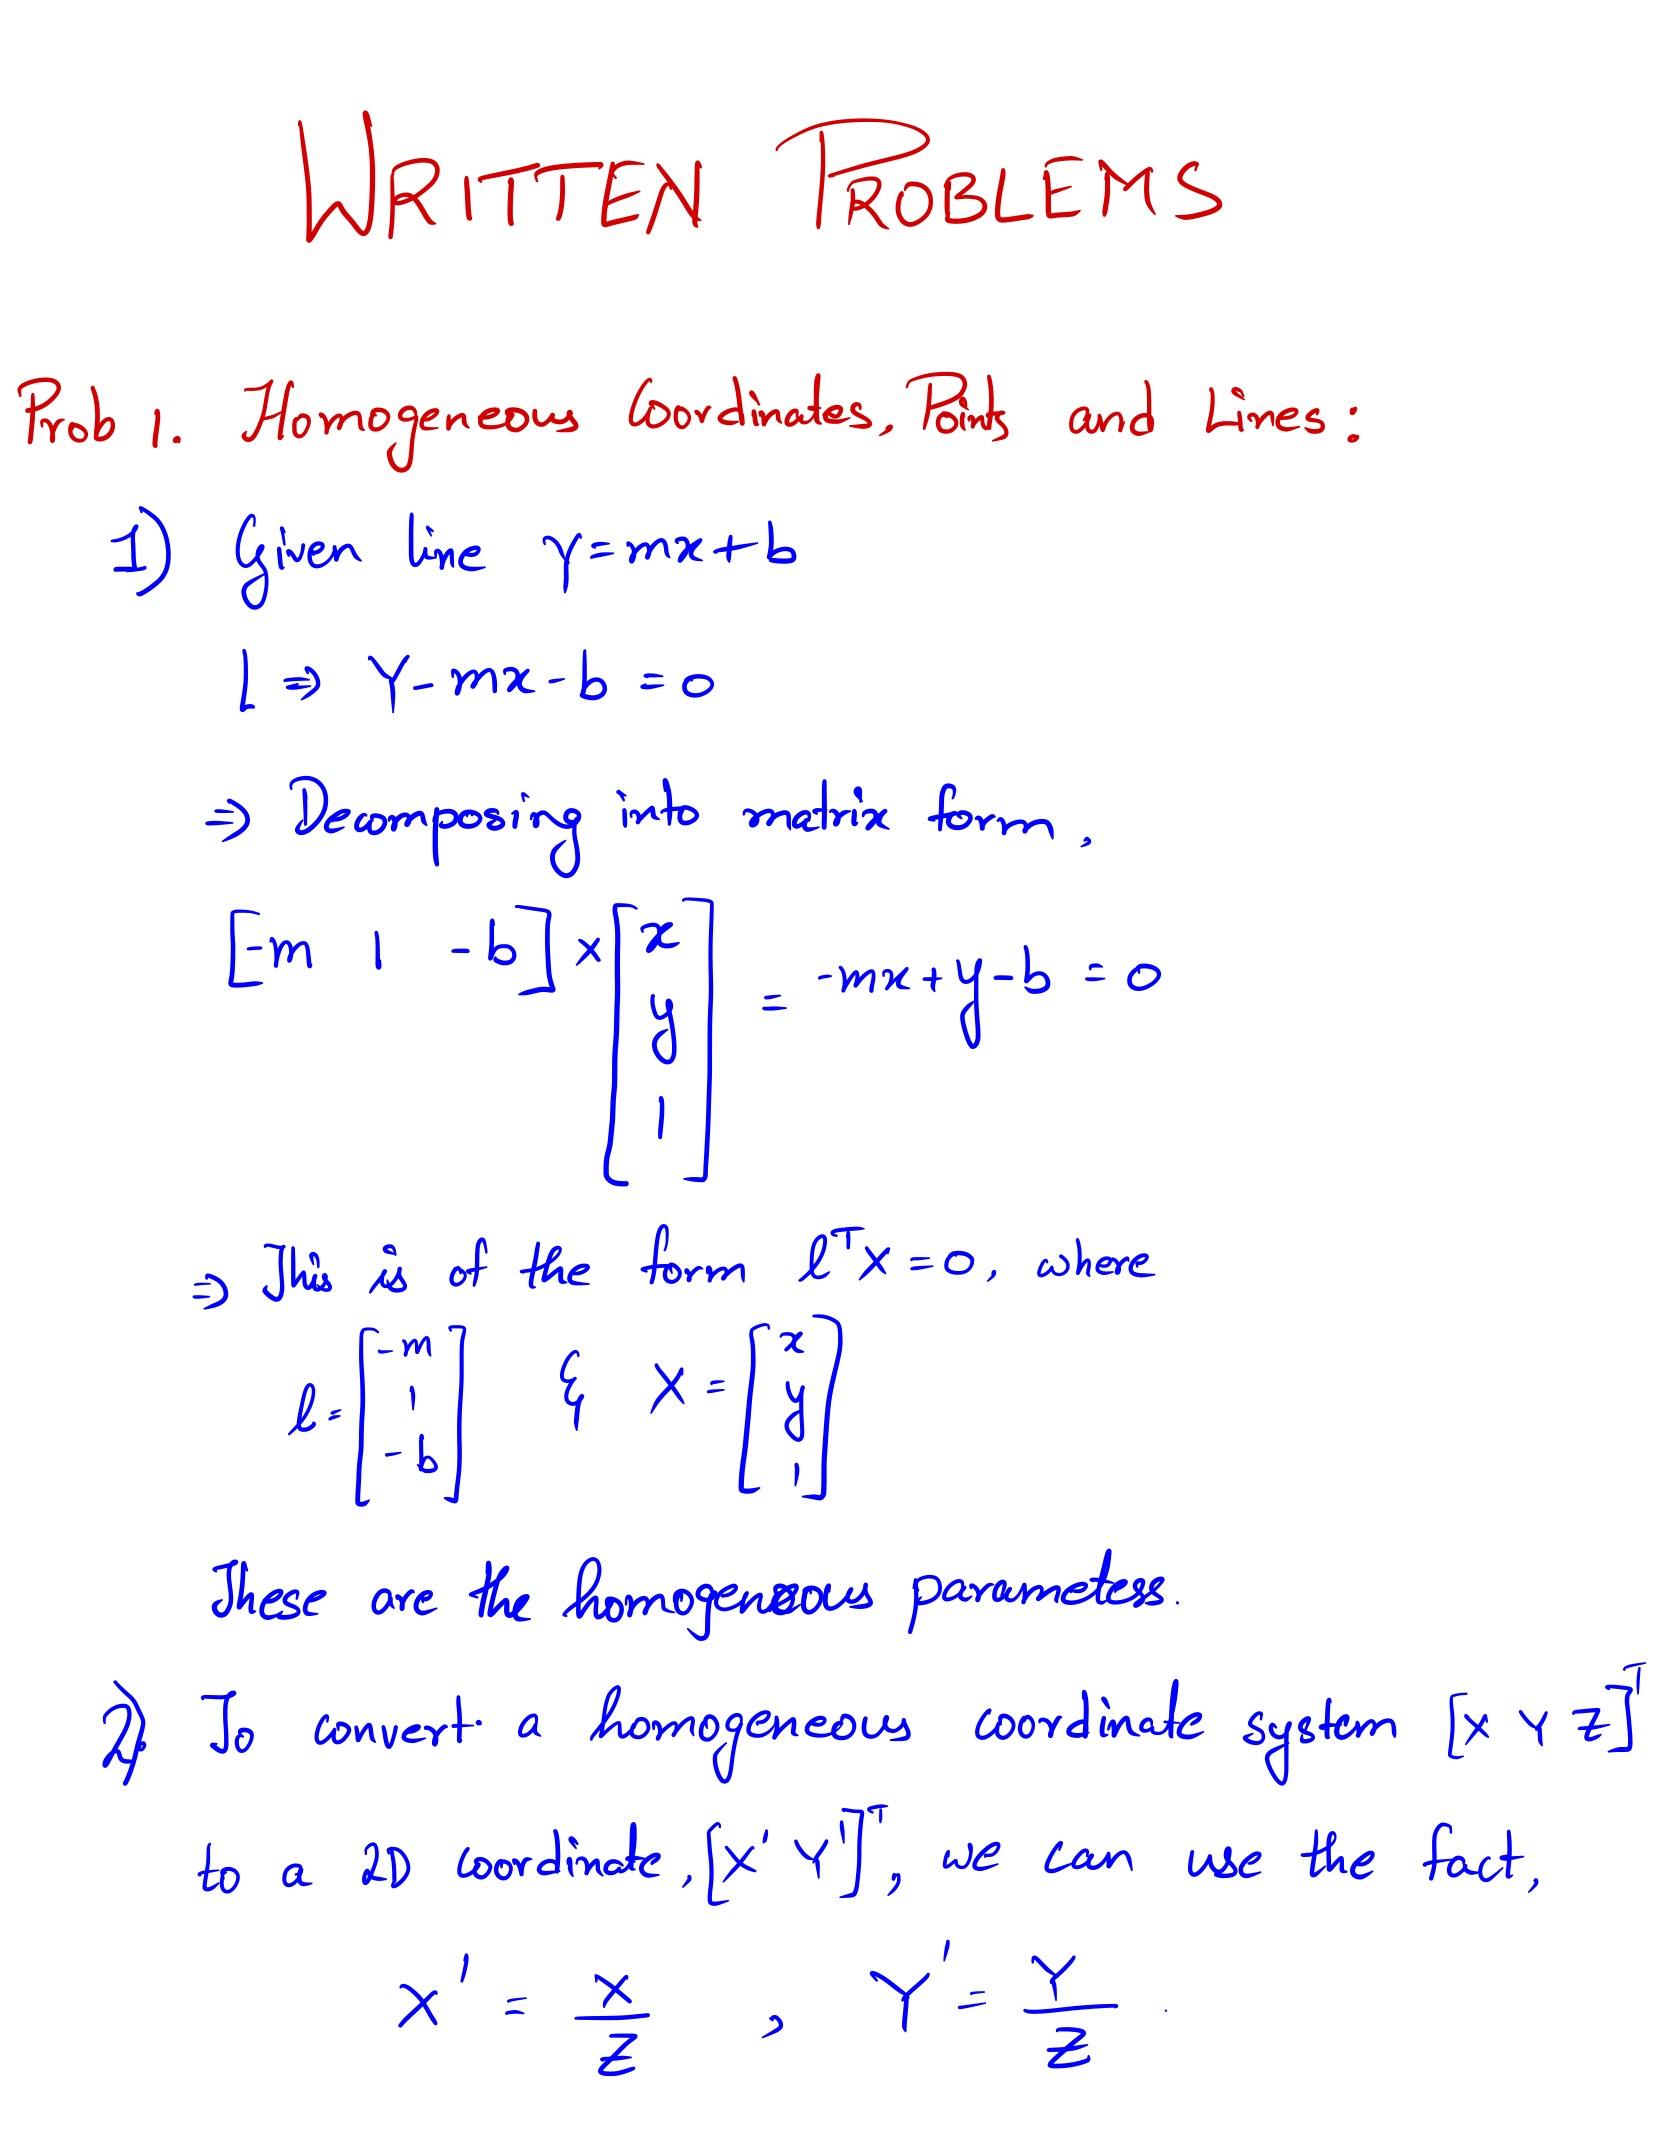 WRITTEN PROBLEMS
Prob 1. Homogeneous Coordinates, Points and Lines:
1) Given line Y=mx+b
L ⇒ Y-mx-b =0
⇒ Decomposing into matrix form,
[-m 1 -b] × [x y 1] = -mx+y-b = 0
⇒ This is of the form lᵀX=0, where
l= [-m 1 -b] & X= [x y 1]
These are the homogeneous parameters.
2) To convert a homogeneous coordinate system [X Y Z]ᵀ
to a 2D coordinate, [X' Y']ᵀ, we can use the fact,
X' = X/Z , Y' = Y/Z .